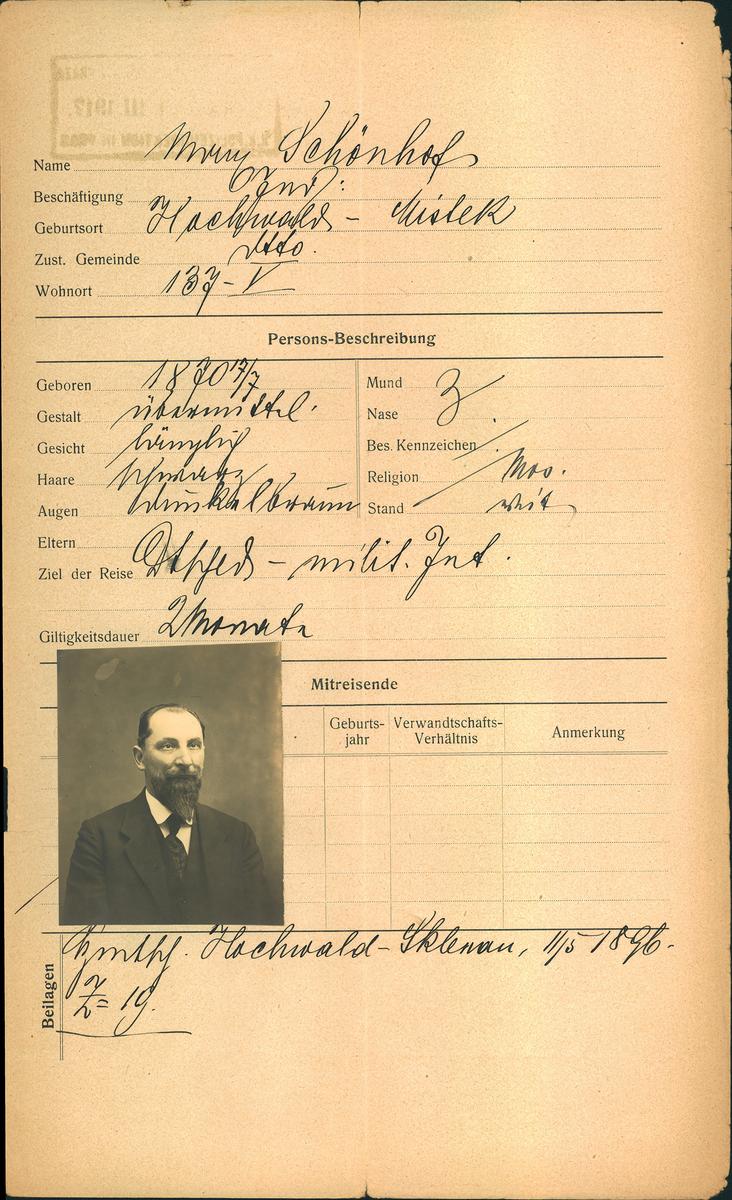 Name Schönhof
Beschäftigung Ind:
Geburtsort Hochwald - Mistek
Zust. Gemeinde dtto.
Wohnort 137-V
Persons-Beschreibung
Geboren 1870 17/7
Gestalt übermittel.
Gesicht länglich
Haare schwarz
Augen dunkelbraun
Mund
Nase
Bes. Kennzeichen
Religion Mos.
Stand
Eltern
Ziel der Reise Dtschld - milit. Int.
Giltigkeitsdauer 2 Monate
Mitreisende
Geburts-
jahr
Verwandtschafts-
Verhältnis
Anmerkung
Beilagen
Hochwald - Sklenau, 11/5 1896.
Z= 19.